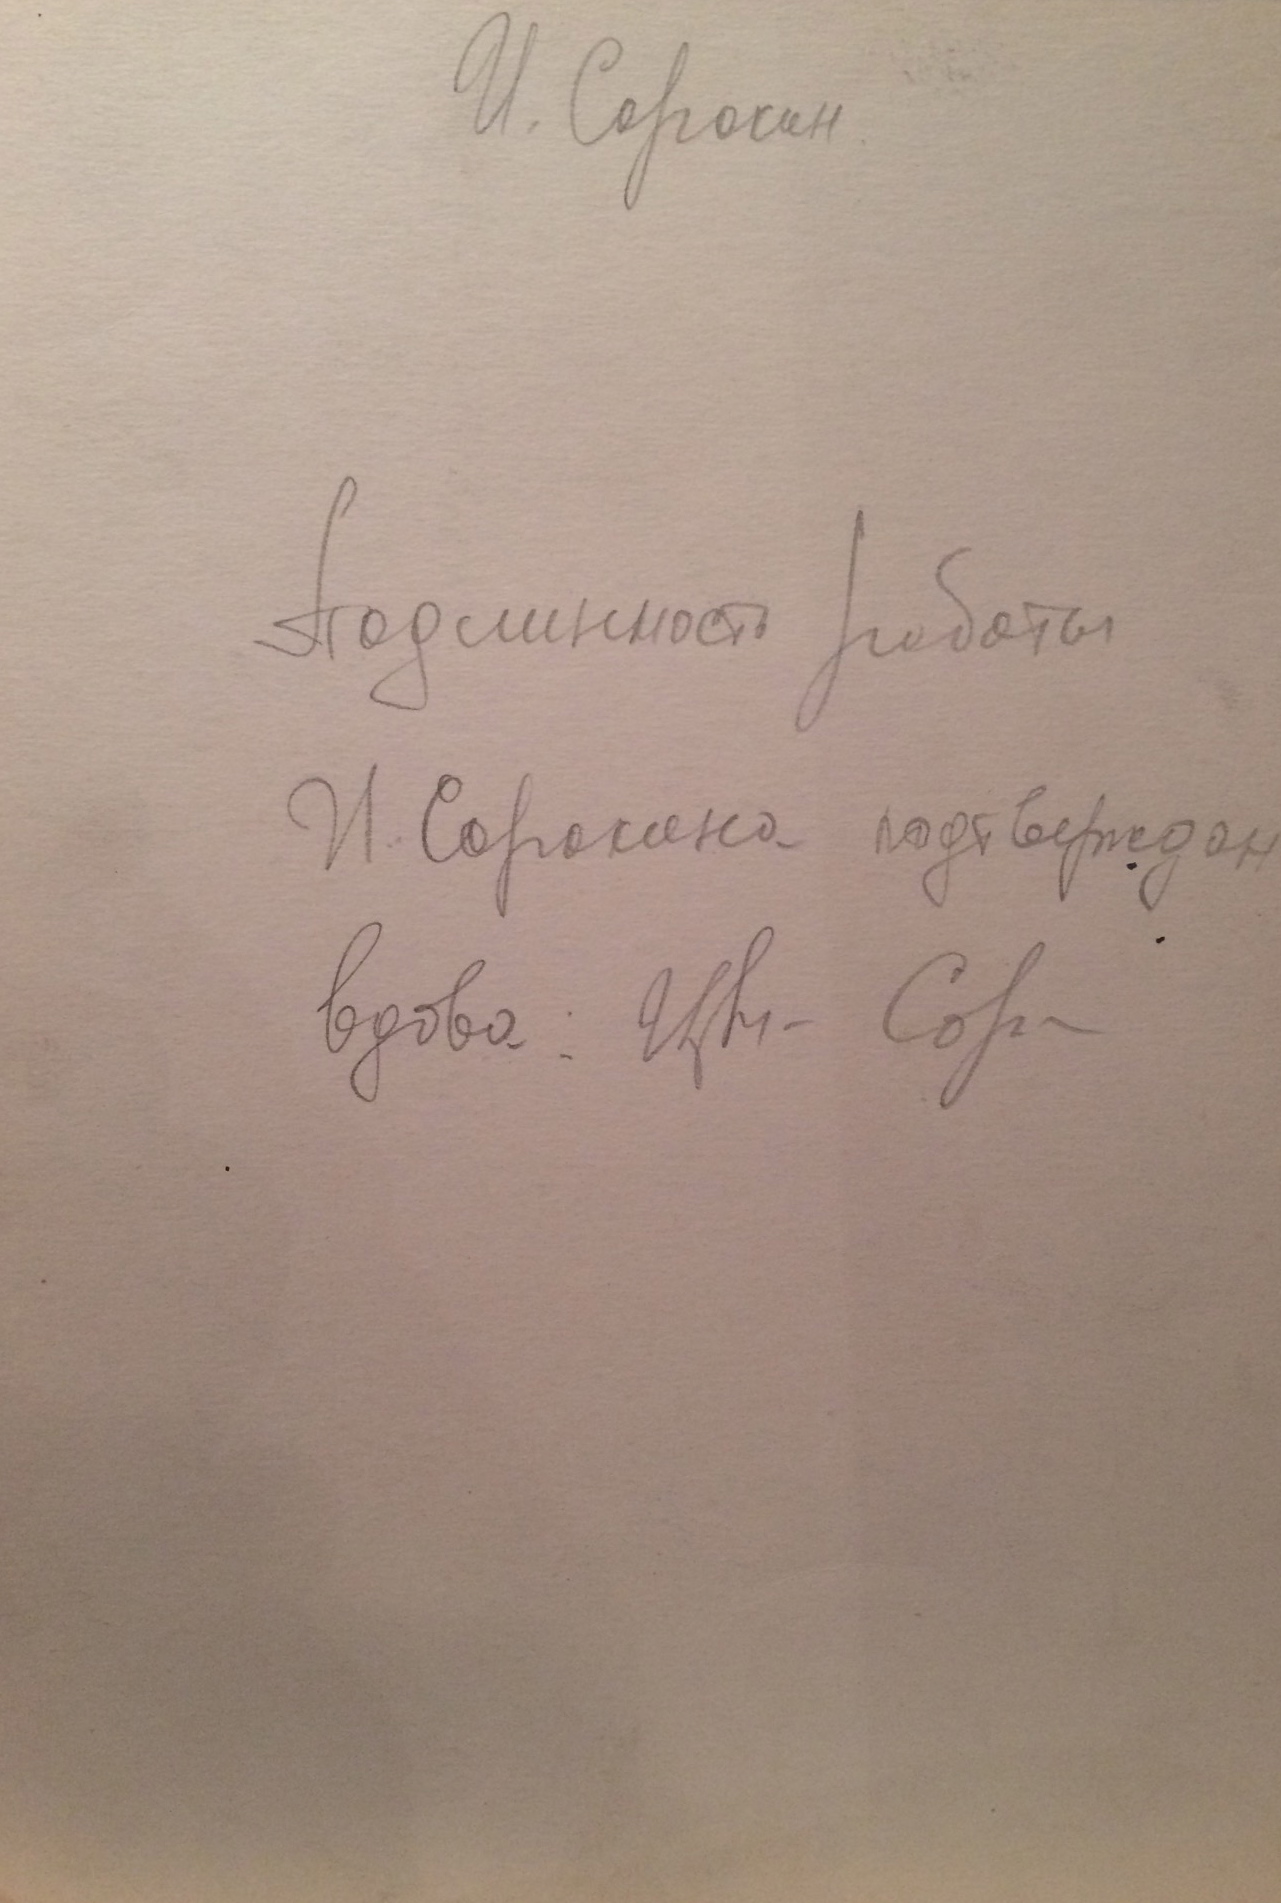 И. Сорокин.
Подлинность работы
И. Сорокина подтверждаю
вдова: